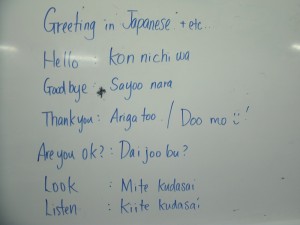 Greeting in Japanese + etc.
Hello : kon nichi wa
Goodbye : Sayoo nara
Thank you : Ariga too / Doo mo
Are you ok? : Dai joo bu?
Look : Mite kudasai
Listen : Kiite kudasai